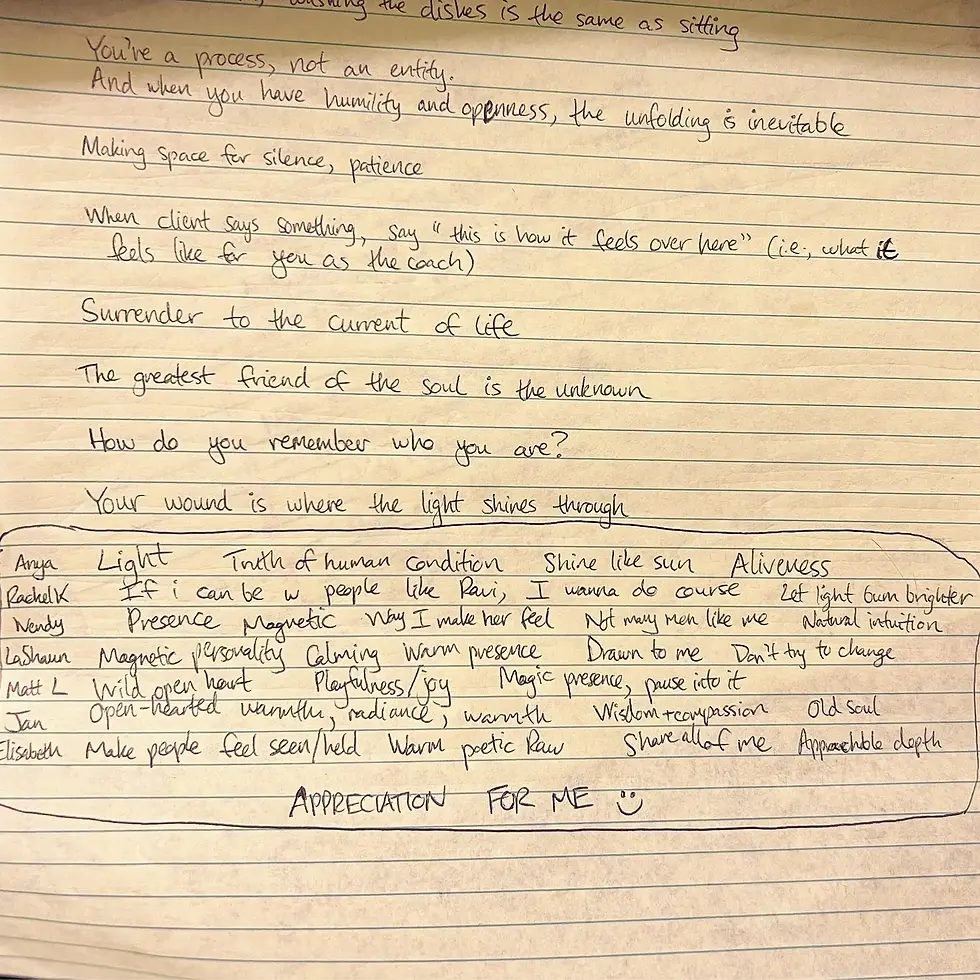 washing the dishes is the same as sitting
You're a process, not an entity.
And when you have humility and openness, the unfolding is inevitable
Making space for silence, patience
When client says something, say "this is how it feels over here" (i.e., what it
feels like for you as the coach)
Surrender to the current of life
The greatest friend of the soul is the unknown
How do you remember who you are?
Your wound is where the light shines through
Anya Light Truth of human condition Shine like sun Aliveness
Rachel K If i can be w people like Ravi, I wanna do course Let light burn brighter
Wendy Presence Magnetic Way I make her feel Not many men like me Natural intuition
LaShaun Magnetic personality Calming Warm presence Drawn to me Don't try to change
Matt L Wild open heart Playfulness/joy Magic presence, pause into it
Jan Open-hearted warmth, radiance, warmth Wisdom + compassion Old soul
Elisabeth Make people feel seen/held Warm poetic Raw Share all of me Approachble depth
APPRECIATION FOR ME :)